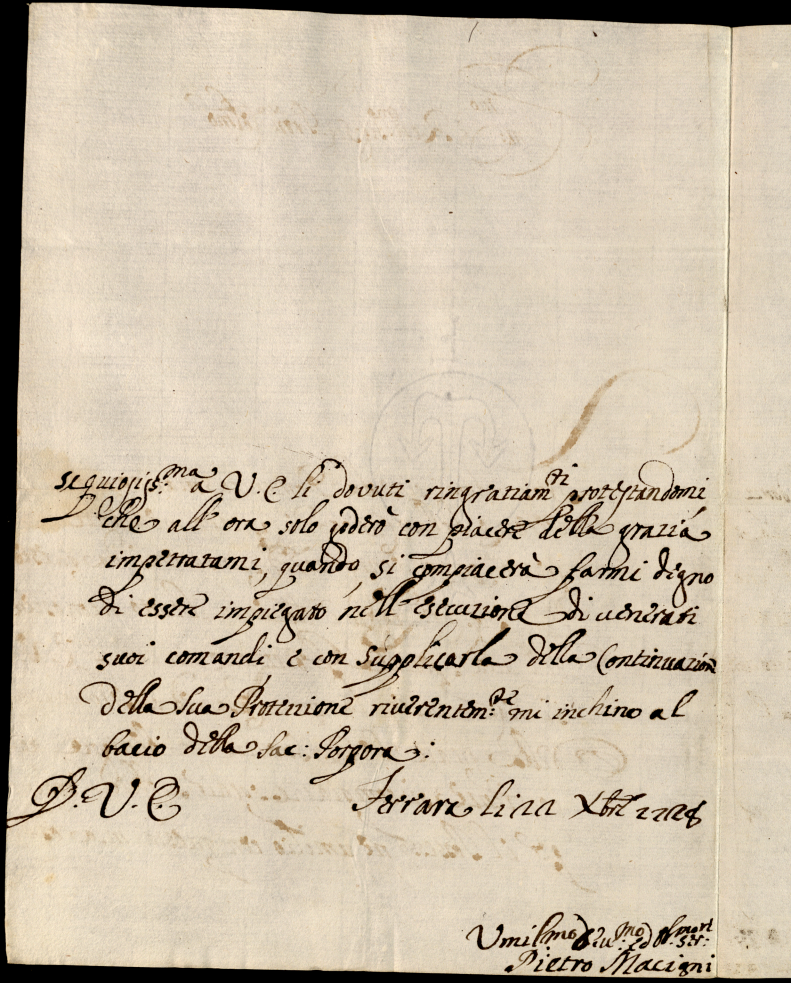 sequiosis:ma a V. E. li dovuti ringratiamti protestandomi
che all' ora solo goderò con piacere della grazia
impetratami, quando si compiacerà farmi degno
di essere impiegato nell' esecuzione di venerati
suoi comandi e con supplicarla della Continuazione
della Sua Protezione riverentem:te mi inchino al
bacio della Sac: Porpora:
D. V. E. Ferrara li 22 Xbre 1728
Umilmo Devmo ed Obl
Pietro Macigni